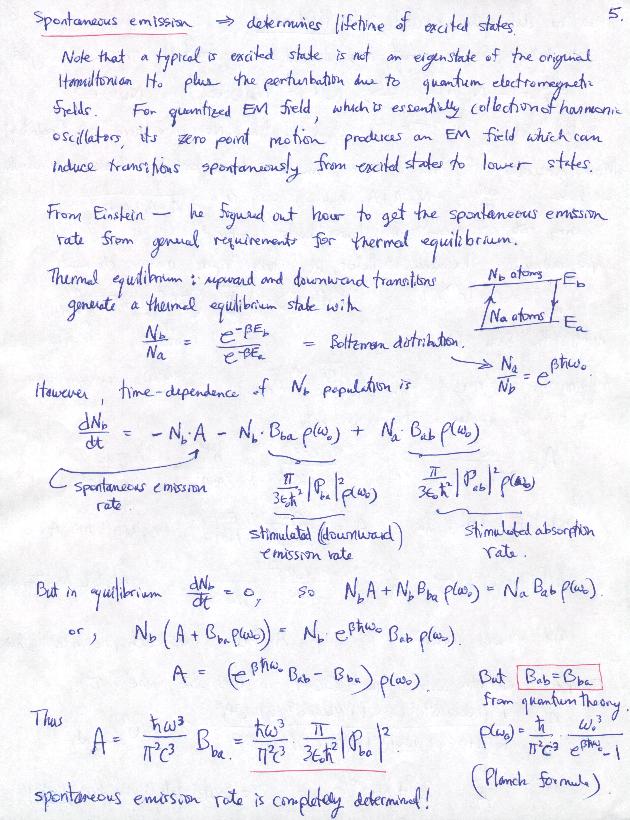 5.
Spontaneous emission ⇒ determines lifetime of excited states.
Note that a typical is excited state is not an eigenstate of the original
Hamiltonian H₀ plus the perturbation due to quantum electromagnetic
fields. For quantized EM field, which is essentially collection of harmonic
oscillators, its zero point motion produces an EM field which can
induce transitions spontaneously from excited states to lower states.
From Einstein — he figured out how to get the spontaneous emission
rate from general requirements for thermal equilibrium.
Thermal equilibrium : upward and downward transitions
generate a thermal equilibrium state with
N_b atoms E_b
N_a atoms E_a
N_b/N_a = e^{-βE_b}/e^{-βE_a} = Boltzman distribution.
→ N_a/N_b = e^{βħω₀}
However, time-dependence of N_b population is
dN_b/dt = - N_b·A - N_b·B_ba ρ(ω₀) + N_a·B_ab ρ(ω₀)
spontaneous emission
rate.
π/3ε₀ħ² |P_ba|² ρ(ω₀)
stimulated (downward)
emission rate
π/3ε₀ħ² |P_ab|² ρ(ω₀)
stimulated absorption
rate.
But in equilibrium dN_b/dt = 0, so N_b A + N_b B_ba ρ(ω₀) = N_a B_ab ρ(ω₀).
or, N_b (A + B_ba ρ(ω₀)) = N_b e^{βħω₀} B_ab ρ(ω₀).
A = (e^{βħω₀} B_ab - B_ba) ρ(ω₀).
But B_ab = B_ba
from quantum theory.
ρ(ω₀) = ħ/π²c³ · ω₀³/(e^{βħω₀} - 1)
(Planck formula)
Thus
A = ħω³/π²c³ B_ba = ħω³/π²c³ · π/3ε₀ħ² |P_ba|²
spontaneous emission rate is completely determined!